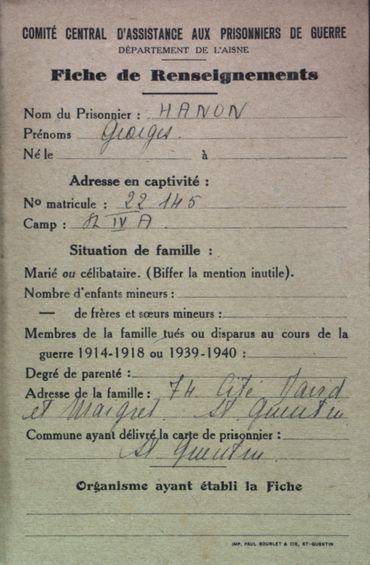 COMITÉ CENTRAL D'ASSISTANCE AUX PRISONNIERS DE GUERRE
DÉPARTEMENT DE L'AISNE
Fiche de Renseignements
Nom du Prisonnier : HANON
Prénoms Georges
Né le à
Adresse en captivité :
No matricule : 22 145
Camp : IV A
Situation de famille :
Marié ou célibataire. (Biffer la mention inutile).
Nombre d'enfants mineurs :
— de frères et sœurs mineurs :
Membres de la famille tués ou disparus au cours de la
guerre 1914-1918 ou 1939-1940 :
Degré de parenté :
Adresse de la famille : 74 Cité David
et Maigret St Quentin
Commune ayant délivré la carte de prisonnier :
St Quentin
Organisme ayant établi la Fiche
IMP. PAUL BOURLET & CIE, ST-QUENTIN